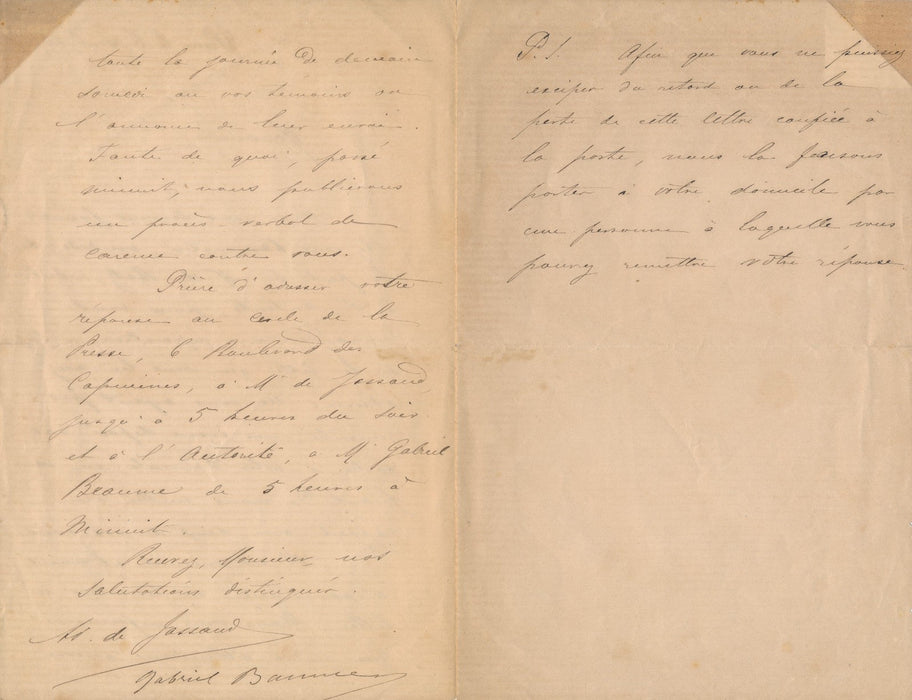 toute la journée de demain
samedi ou vos témoins ou
l'annonce de leur envoi.
Faute de quoi, passé
minuit, nous publierons
un procès-verbal de
carence contre vous.
Prière d'adresser votre
réponse au cercle de la
Presse, 6 Boulevard des
Capucines, à Mr de Jassaud,
jusqu'à 5 heures du soir
et à l'Autorité, à Mr Gabriel
Beaume de 5 heures à
Minuit.
Recevez, Monsieur, nos
salutations distinguées.
de Jassaud
Gabriel Beaume
P.S. Afin que vous ne puissiez
exciper du retard ou de la
perte de cette lettre confiée à
la poste, nous la faisons
porter à votre domicile par
une personne à laquelle vous
pouvez remettre votre réponse.